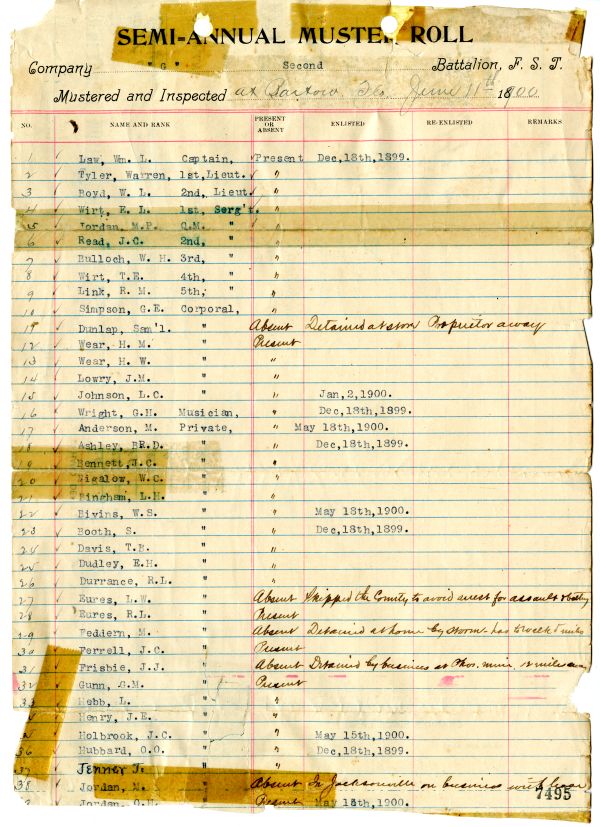 SEMI-ANNUAL MUSTER ROLL
Company "G" Second Battalion, F. S. T.
Mustered and Inspected at Bartow Fla. June 11th 1900
NO. NAME AND RANK PRESENT OR ABSENT ENLISTED RE-ENLISTED REMARKS
1 ✓ Law, Wm. L. Captain, Present Dec,18th,1899.
2 ✓ Tyler, Warren, 1st,Lieut. ✓ "
3 ✓ Boyd, W. L. 2nd, Lieut. ✓ "
4 ✓ Wirt, E. L. 1st, Serg't. "
5 ✓ Jordan, M.P. Q.M. " "
6 ✓ Read, J.C. 2nd, " "
7 ✓ Bulloch, W. H. 3rd, " "
8 ✓ Wirt, T.E. 4th, " "
9 ✓ Link, R. M. 5th, " "
10 ✓ Simpson, G.E. Corporal, "
11 ✓ Dunlap, Sam'l. " Absent Detained at store Proprietor away
12 ✓ Wear, H. M. " Present
13 ✓ Wear, H. W. " "
14 ✓ Lowry, J.M. " "
15 ✓ Johnson, L.C. " " Jan,2,1900.
16 ✓ Wright, G.H. Musician, " Dec,18th,1899.
17 ✓ Anderson, M. Private, " May 18th,1900.
18 ✓ Ashley, BR.D. " " Dec,18th,1899.
19 ✓ Bennett,J.C. " "
20 ✓ Bigalow, W.C. " "
21 ✓ Bingham, L.H. " "
22 ✓ Bivins, W.S. " " May 18th,1900.
23 ✓ Booth, S. " " Dec,18th,1899.
24 ✓ Davis, T.B. " "
25 ✓ Dudley, E.H. " "
26 ✓ Durrance, R.L. " "
27 ✓ Eures, L.W. " Absent Skipped the County to avoid arrest for assault & battery
28 ✓ Eures, R.L. " Present
29 ✓ Feddiern, M. " Absent Detained at home by storm has to walk 5 miles
30 ✓ Ferrell, J.C. " Present
31 ✓ Frisbie, J.J. " Absent Detained by business at Phos. mine miles away
32 ✓ Gunn, G.M. " Present
33 ✓ Hebb, L. " "
✓ Henry, J.E. " "
✓ Holbrook, J.C. " " May 15th,1900.
36 ✓ Hubbard, O.O. " " Dec,18th,1899.
37 ✓ Jenney J. " "
38 ✓ Jordan, M. " Absent In Jacksonville on business with leave
Jordan, O.H. " Present May 18th,1900.
7495